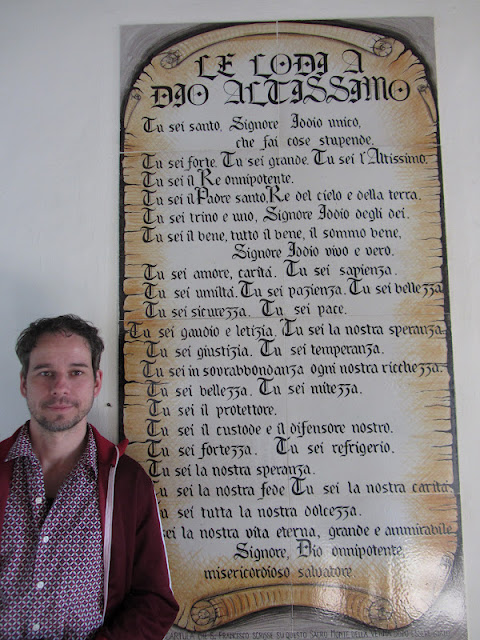 LE LODI A
DIO ALTISSIMO
Tu sei santo, Signore Iddio unico,
che fai cose stupende.
Tu sei forte. Tu sei grande. Tu sei l'Altissimo.
Tu sei il Re onnipotente.
Tu sei il Padre santo, Re del cielo e della terra.
Tu sei trino e uno, Signore Iddio degli dei.
Tu sei il bene, tutto il bene, il sommo bene,
Signore Iddio vivo e vero.
Tu sei amore, carità. Tu sei sapienza.
Tu sei umiltà. Tu sei pazienza. Tu sei bellezza
Tu sei sicurezza. Tu sei pace.
Tu sei gaudio e letizia. Tu sei la nostra speranza.
Tu sei giustizia. Tu sei temperanza.
Tu sei in sovrabbondanza ogni nostra ricchezza.
Tu sei bellezza. Tu sei mitezza.
Tu sei il protettore.
Tu sei il custode e il difensore nostro.
Tu sei fortezza. Tu sei refrigerio.
Tu sei la nostra speranza.
Tu sei la nostra fede Tu sei la nostra carità
Tu sei tutta la nostra dolcezza.
sei la nostra vita eterna, grande e ammirabile
Signore, Dio onnipotente,
misericordioso salvatore
CHE S. FRANCESCO SCRISSE SU QUESTO SACRO MONTE DELLA VERNA